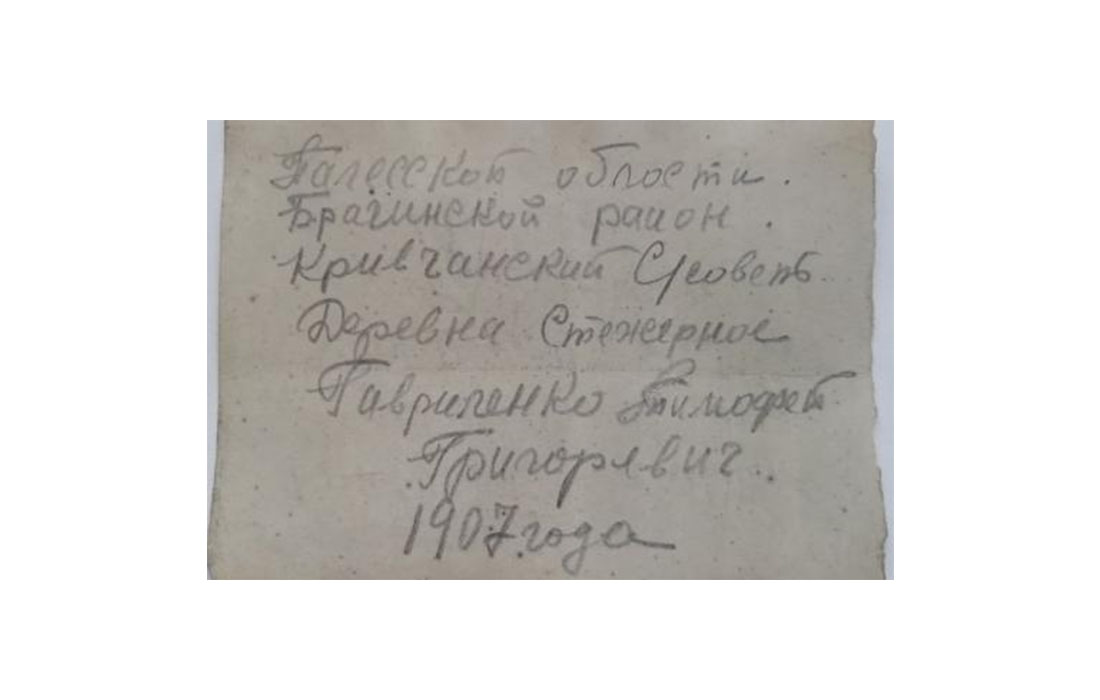 Палесской области.
Брагинской район.
Кривчанский С/советъ
Деревна Стежерное
Гавриленко Тимофей
Григорявич.
1907 года